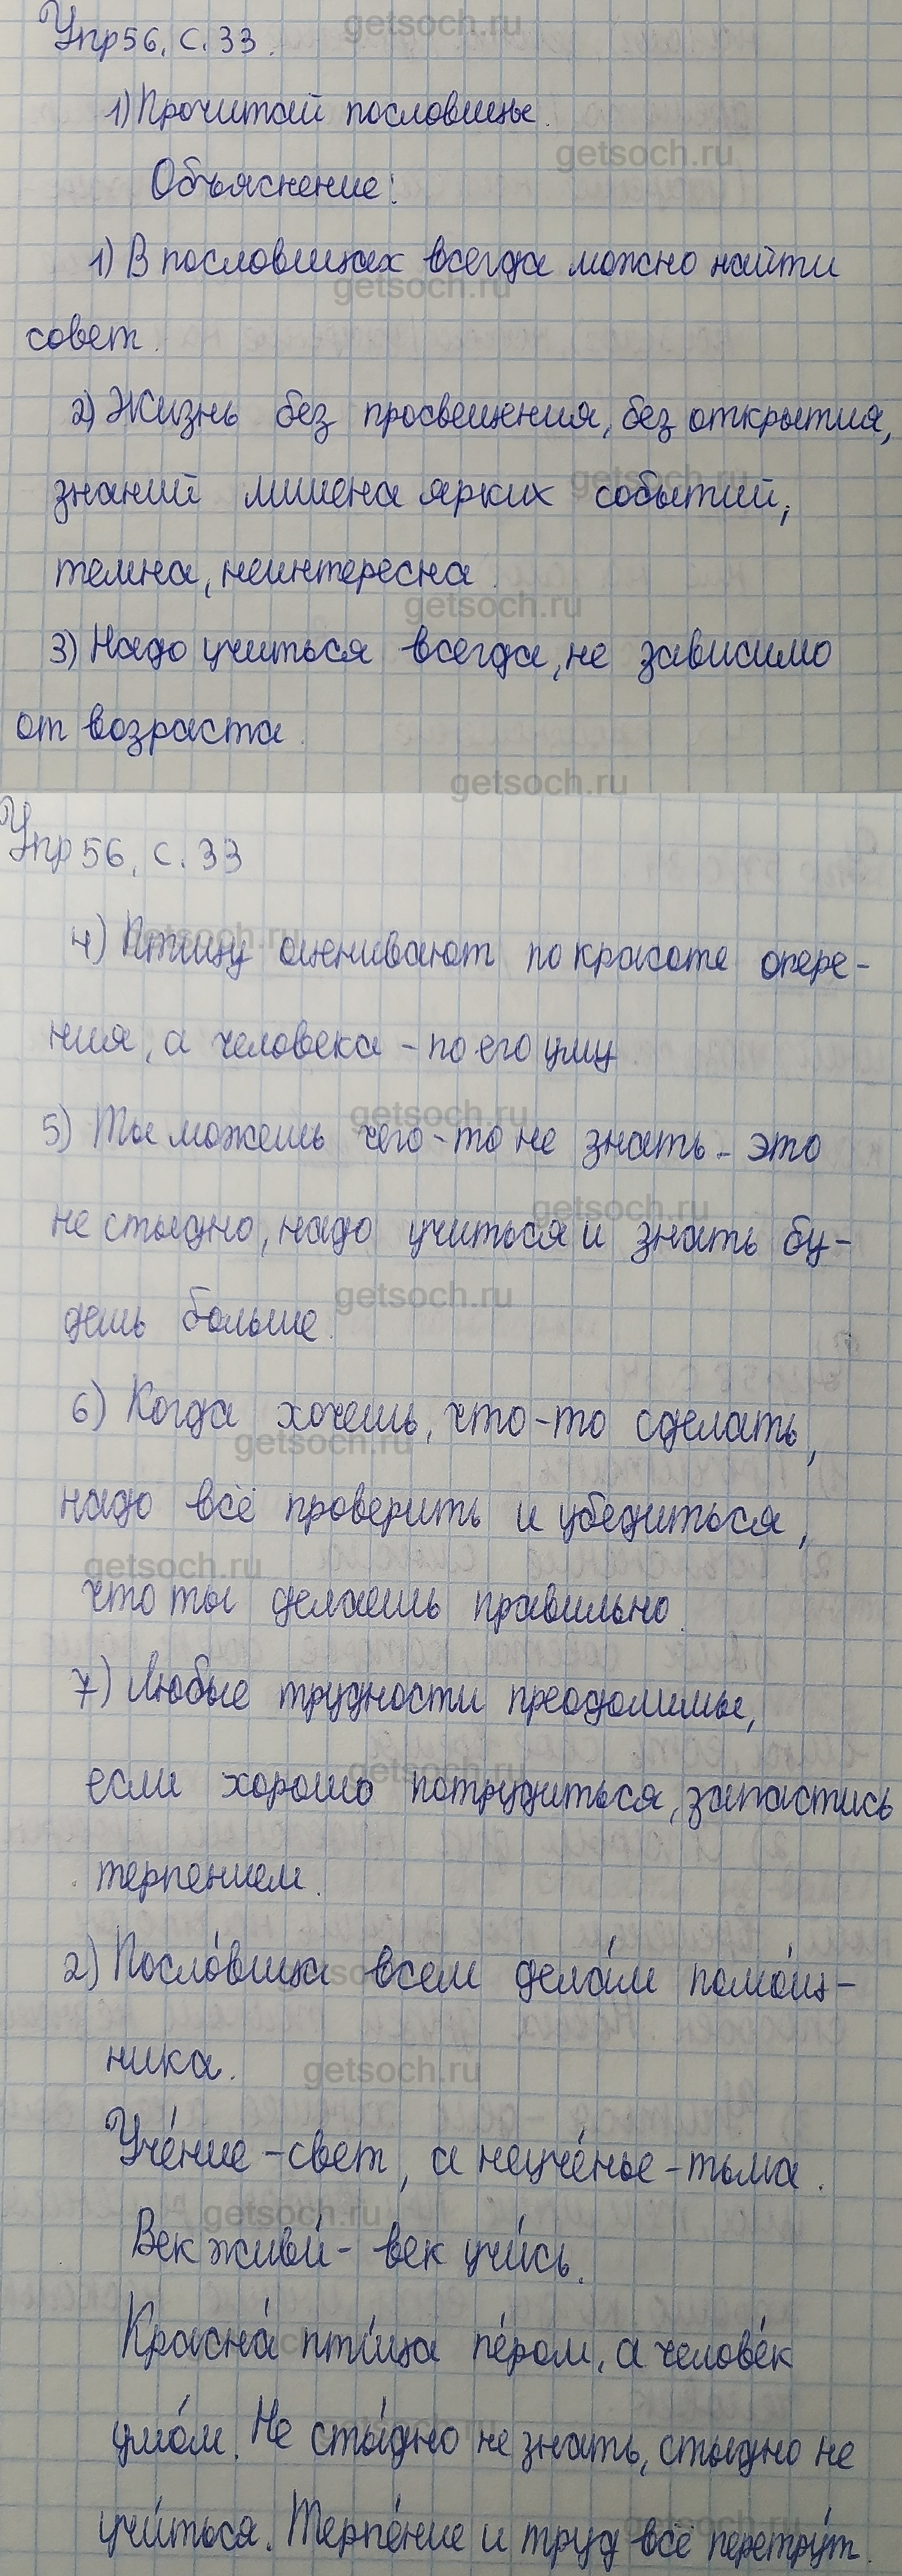 getsoch.ru
Упр 56, с. 33.
1) Прочитай пословицы.
getsoch.ru
Объяснение:
1) В пословицах всегда можно найти
getsoch.ru
совет.
2) Жизнь без просвещения, без открытия,
getsoch.ru
знаний лишена ярких событий,
темна, неинтересна.
getsoch.ru
3) Надо учиться всегда, не зависимо
от возраста.
getsoch.ru
Упр 56, с. 33
getsoch.ru
4) Птицу оценивают по красоте опере-
ния, а человека - по его уму.
getsoch.ru
5) Ты можешь чего-то не знать - это
getsoch.ru
не стыдно, надо учиться и знать бу-
getsoch.ru
дешь больше.
6) Когда хочешь, что-то сделать,
getsoch.ru
надо всё проверить и убедиться,
getsoch.ru
что ты делаешь правильно.
7) Любые трудности преодолимы,
getsoch.ru
если хорошо потрудиться, запастись
терпением.
2) Посло́вица всем дела́м помо́щ-
getsoch.ru
ника.
getsoch.ru
Уче́ние - свет, а неуче́нье - тьма.
getsoch.ru
Век живи́ - век учи́сь.
Красна́ пти́ца пе́ром, а челове́к
умо́м. Не сты́дно не знать, стыдно не
учи́ться. Терпе́ние и труд всё перетру́т.